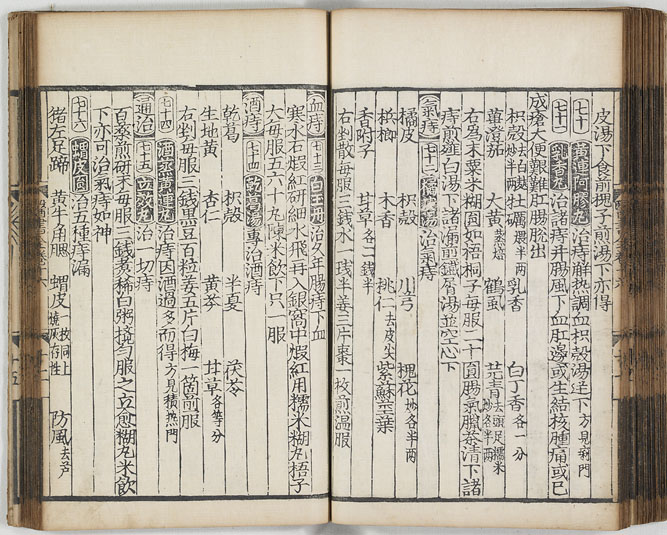 皮湯下食前槐子煎湯下亦得
七十 黃連阿膠丸 治痔癖熱調血枳殼湯送下 方見痢門
七十一 乳香丸 治諸痔并腸風下血肛邊或生結核腫痛或已
成瘡大便艱難肛腸脫出
枳殼 去白麩炒半兩 牡礪 煨半兩 乳香 白丁香 各一分
蓽澄茄 大黃 蒸焙 鶴虱 芫青 去頭足糯米炒各半兩
右為末粟米糊圓如梧桐子每服二十圓腸氣臘茶清下諸
痔煎薤白湯下諸漏煎鐵屑湯並空心下
氣痔 七十二 橘皮湯 治氣痔
橘皮 枳殼 小芎 槐花 炒各半兩
檳榔 木香 桃仁 去皮尖 紫蘇莖葉
香附子 甘草 各二錢半
右剉散每服三錢水一錢半姜三片棗一枚煎溫服
血痔 七十三 白玉丹 治久年腸痔下血
寒水石煅紅研細水飛再入銀窩中煅紅用糯米糊丸梧子
大每服五六十九陳米飲下只一服
酒痔 七十四 乾葛湯 專治酒痔
乾葛 枳殼 半夏 茯苓
生地黃 杏仁 黃芩 甘草 各等分
右剉每服三錢黑豆百粒姜五片白梅一箇煎服
七十四 酒蒸黃連丸 治痔因酒過多而得 方見積熱門
通治 七十五 立效丸 治一切痔
百藥煎研末每服三錢煮稀白粥攪勻服之立愈糊丸米飲
下亦可治氣痔如神
七十六 蝟皮圓 治五種痔漏
猪左足蹄 黃牛角䚡 蝟皮 燒灰存性 防風 去芦